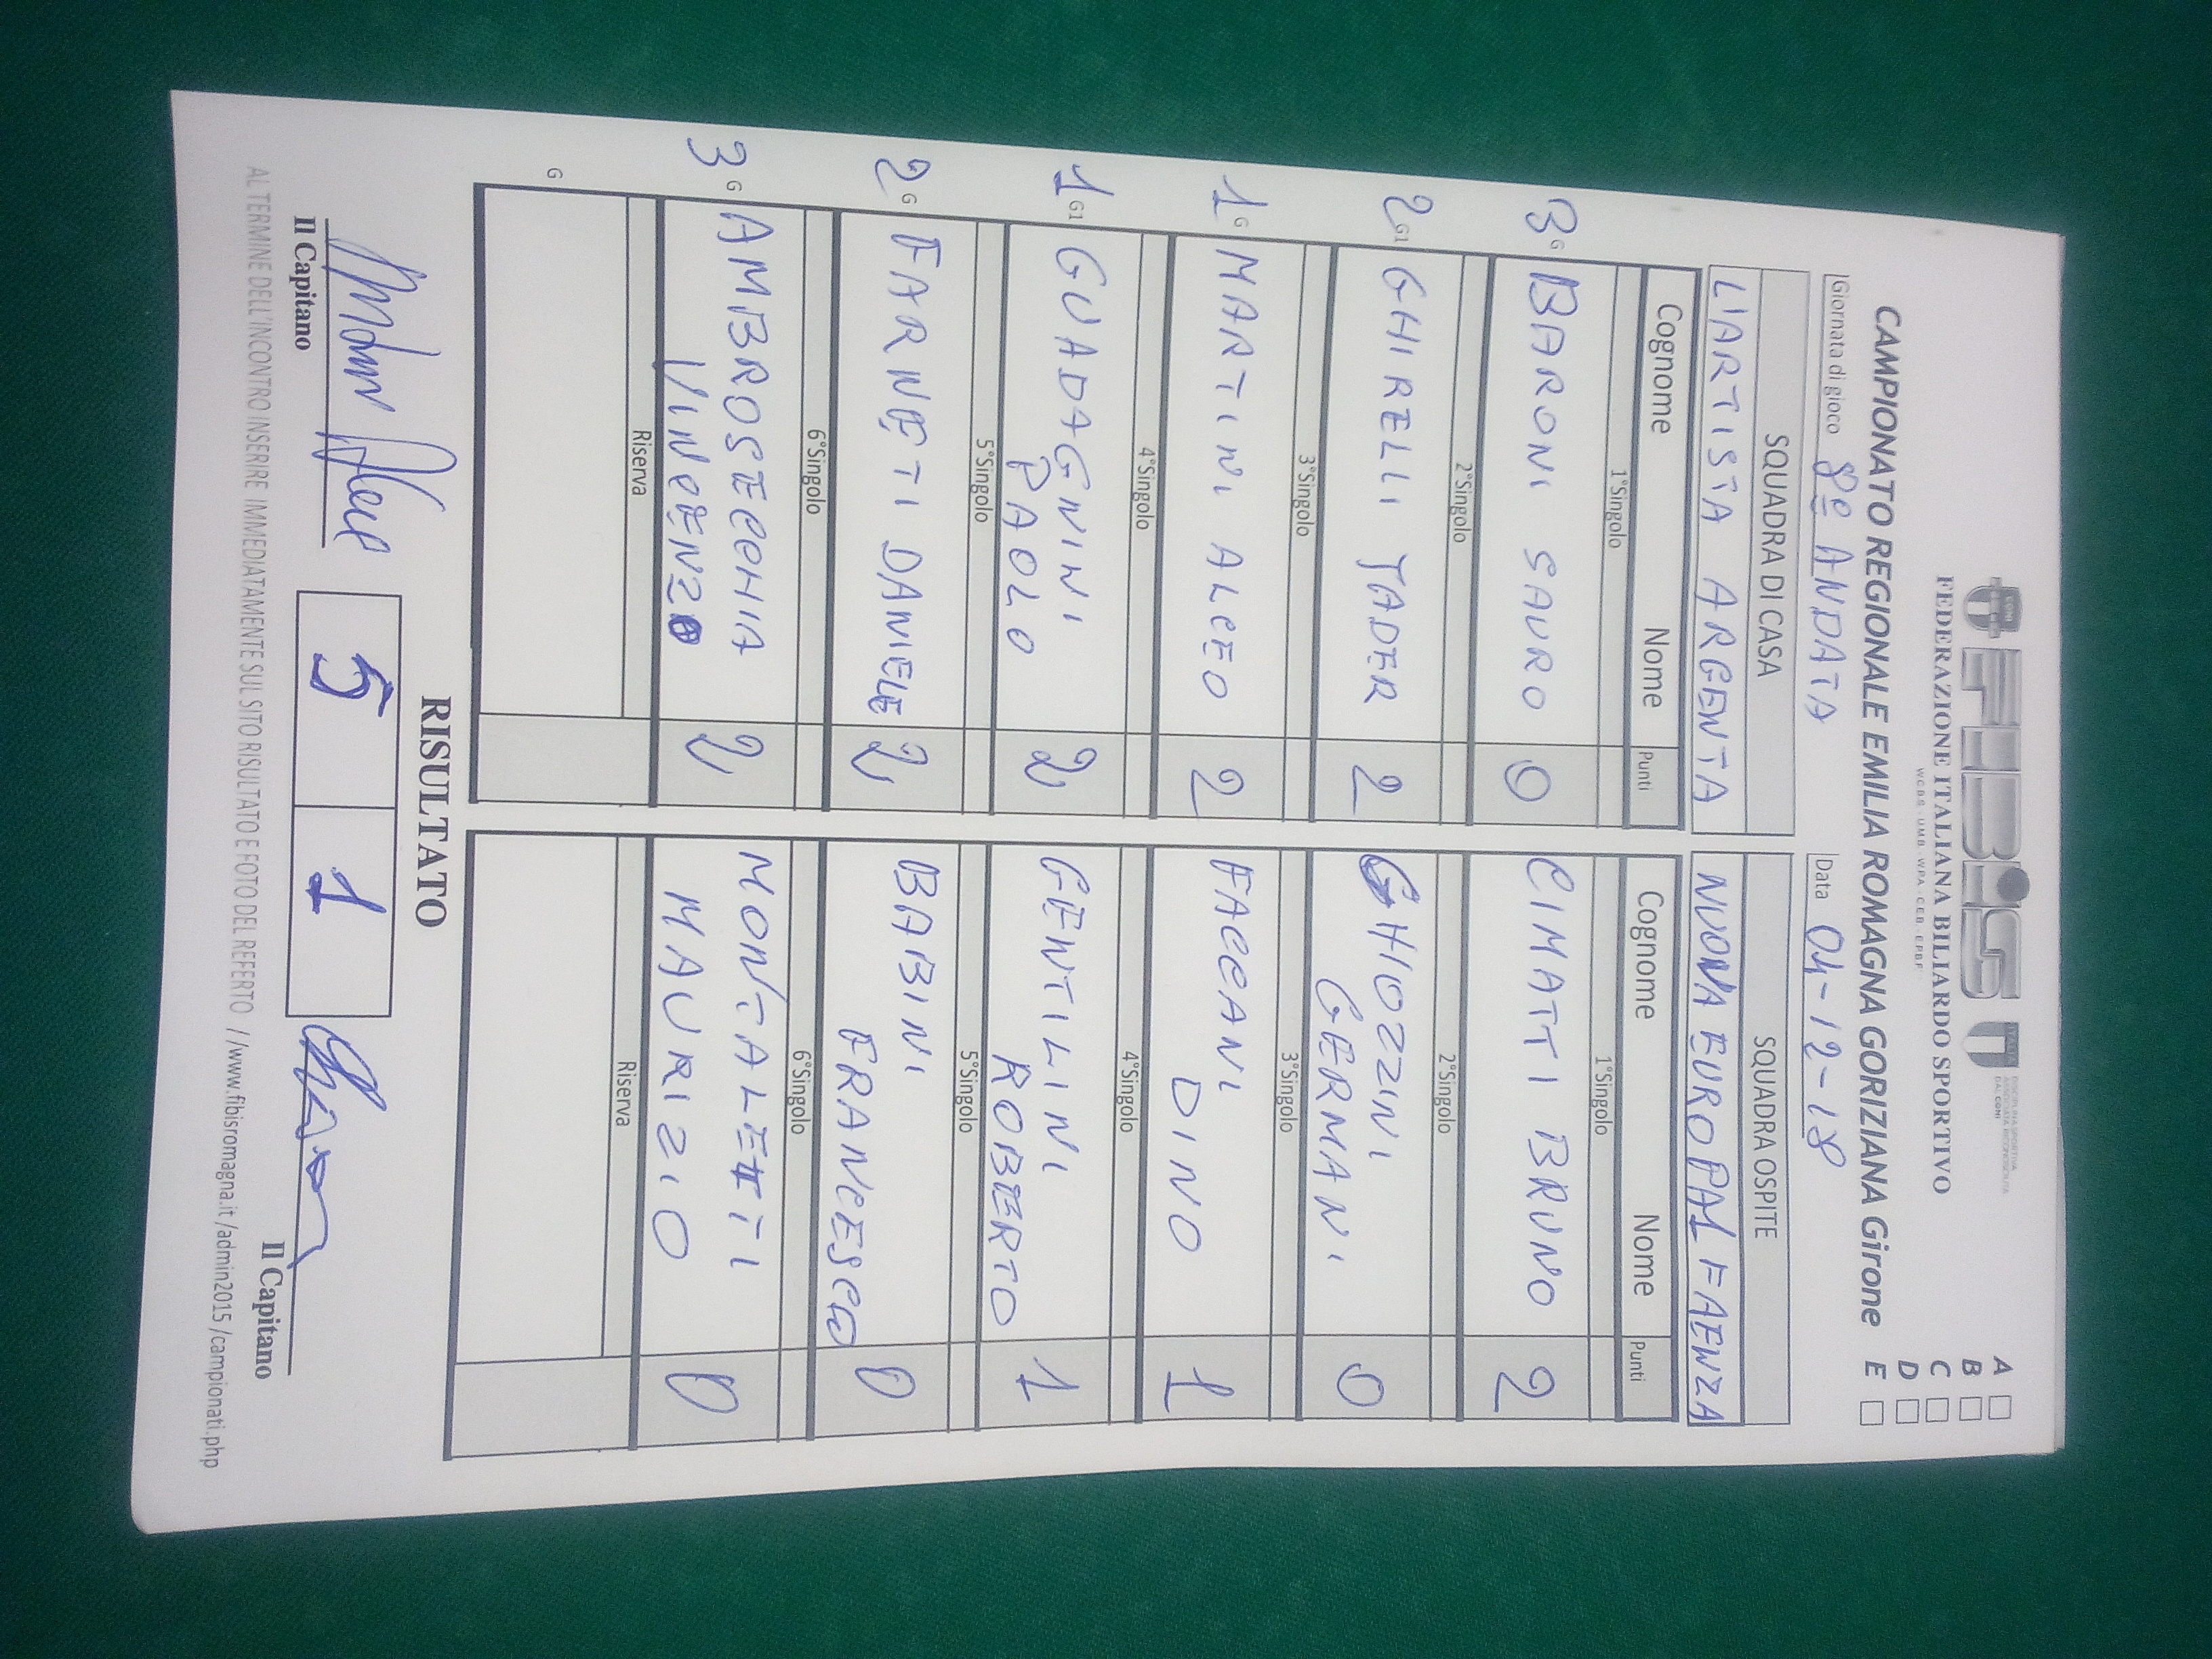 FIBiS
ITALIA
DISCIPLINA SPORTIVA
ASSOCIATA RICONOSCIUTA
DAL CONI
FEDERAZIONE ITALIANA BILIARDO SPORTIVO
W.C.B.S. - U.M.B. - W.P.A. - C.E.B. - E.P.B.F.
CAMPIONATO REGIONALE EMILIA ROMAGNA GORIZIANA Girone
A
B
C
D
E
Giornata di gioco 8ª ANDATA Data 04-12-18
SQUADRA DI CASA SQUADRA OSPITE
L'ARTISTA ARGENTA NUOVA EUROPA 1 FAENZA
Cognome Nome Punti Cognome Nome Punti
1°Singolo 1°Singolo
3 G BARONI SAURO 0 CIMATTI BRUNO 2
2°Singolo 2°Singolo
2 G1 GHIRELLI JADER 2 GHIOZZINI GERMANI 0
3°Singolo 3°Singolo
1 G MARTINI ALCEO 2 FACCANI DINO 1
4°Singolo 4°Singolo
1 G1 GUADAGNINI PAOLO 2 GENTILINI ROBERTO 1
5°Singolo 5°Singolo
2 G FARNETI DANIELE 2 BABINI FRANCESCO 0
6°Singolo 6°Singolo
3 G AMBROSECCHIA VINCENZO 2 MONTALETTI MAURIZIO 0
Riserva Riserva
G
RISULTATO
5 1
Il Capitano Il Capitano
AL TERMINE DELL'INCONTRO INSERIRE IMMEDIATAMENTE SUL SITO RISULTATO E FOTO DEL REFERTO //www.fibisromagna.it /admin2015 /campionati.php